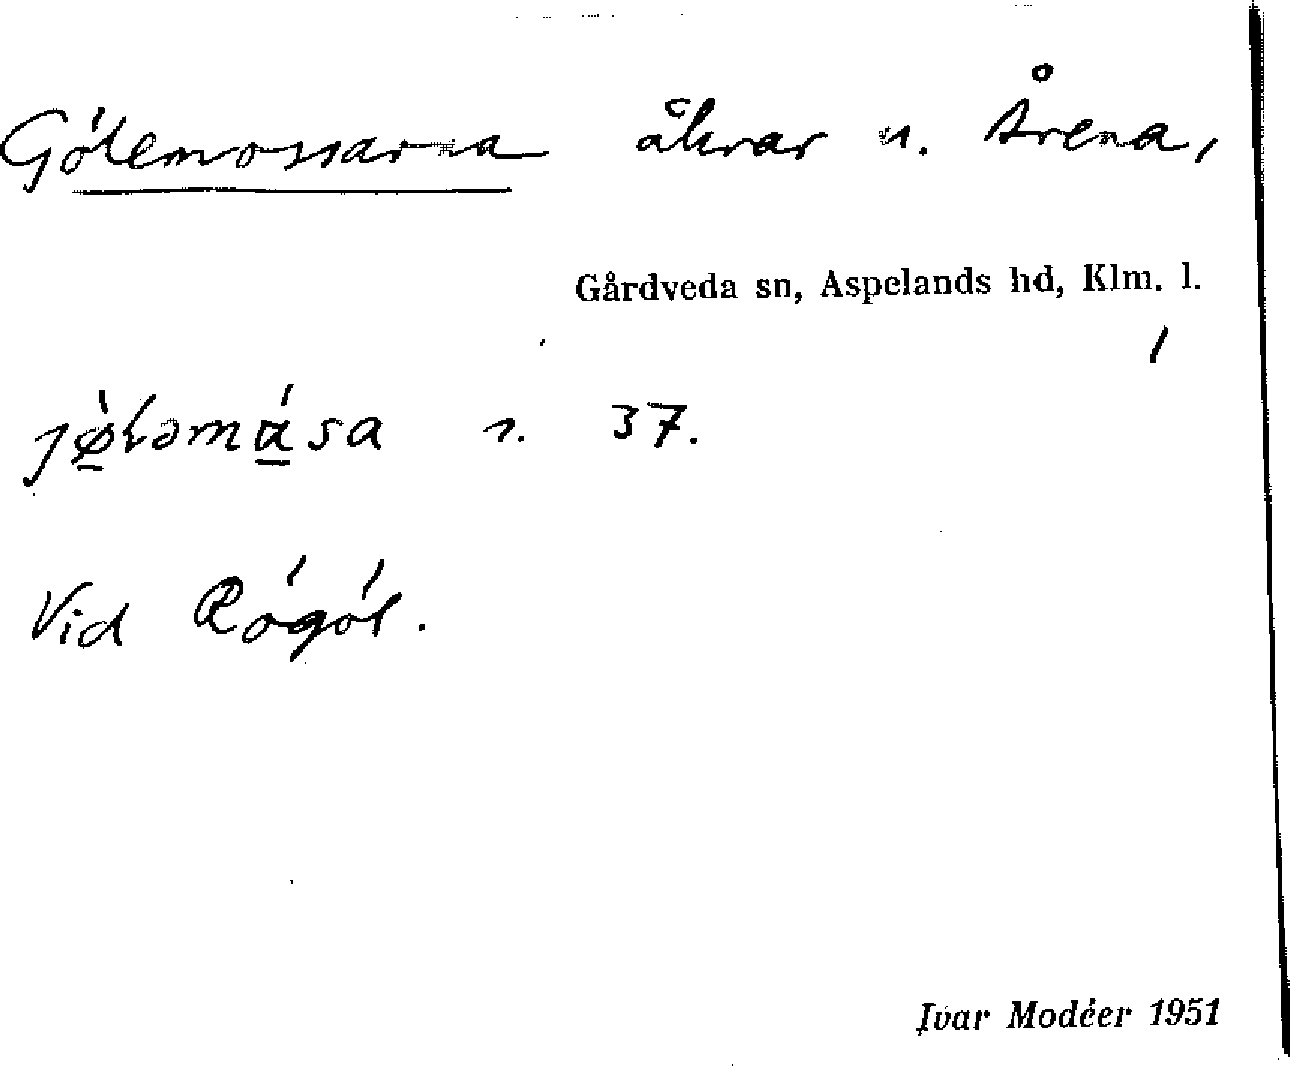 Gölemossarna åkrar u. Årena,
Gårdveda sn, Aspelands hd, Klm. l.
jø̠̀ləmɑ̠́sa s. 37.
Vid Rögöl.
Ivar Modéer 1951